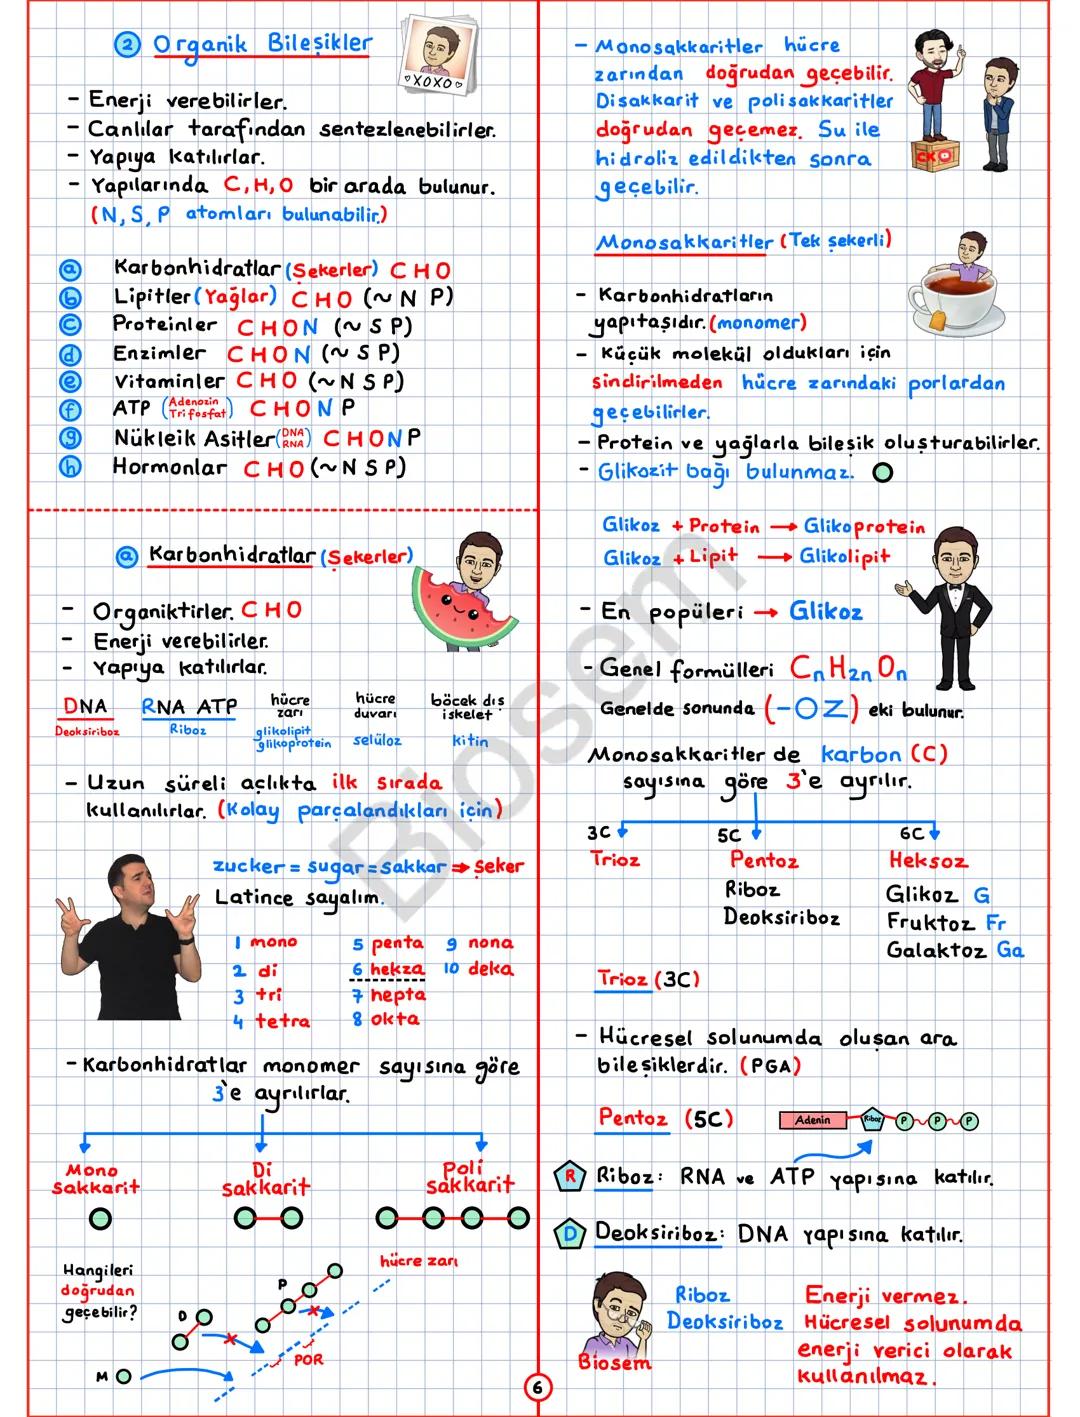 2 Organik Bileşikler
♡XOXO♡
- Enerji verebilirler.
- Canlılar tarafından sentezlenebilirler.
- Yapıya katılırlar.
- Yapılarında C,H,O bir arada bulunur.
(N, S, P atomları bulunabilir.)
a Karbonhidratlar (Şekerler) C H O
b Lipitler (Yağlar) C H O (~ N P)
c Proteinler C H O N (~ S P)
d Enzimler C H O N (~ S P)
e Vitaminler C H O (~ N S P)
f ATP (Adenozin Trifosfat) C H O N P
g Nükleik Asitler (DNA RNA) C H O N P
h Hormonlar C H O (~ N S P)
a Karbonhidratlar (Şekerler)
- Organiktirler. C H O
- Enerji verebilirler.
- Yapıya katılırlar.
DNA RNA ATP hücre zarı hücre duvarı böcek dış iskelet
Deoksiriboz Riboz glikolipit glikoprotein selüloz kitin
- Uzun süreli açlıkta ilk sırada
kullanılırlar. (Kolay parçalandıkları için)
zucker = sugar = sakkar ⇒ şeker
Latince sayalım.
1 mono 5 penta 9 nona
2 di 6 hekza 10 deka
3 tri 7 hepta
4 tetra 8 okta
- Karbonhidratlar monomer sayısına göre
3'e ayrılırlar.
Mono sakkarit Di sakkarit Poli sakkarit
Hangileri
doğrudan
geçebilir?
hücre zarı
P
D
POR
M
- Monosakkaritler hücre
zarından doğrudan geçebilir.
Disakkarit ve polisakkaritler
doğrudan geçemez. Su ile
hidroliz edildikten sonra
geçebilir.
CK
Monosakkaritler (Tek şekerli)
- Karbonhidratların
yapıtaşıdır. (monomer)
- Küçük molekül oldukları için
sindirilmeden hücre zarındaki porlardan
geçebilirler.
- Protein ve yağlarla bileşik oluşturabilirler.
- Glikozit bağı bulunmaz.
Glikoz + Protein → Glikoprotein
Glikoz + Lipit → Glikolipit
- En popüleri → Glikoz
- Genel formülleri CnH2nOn
Genelde sonunda (-OZ) eki bulunur.
Monosakkaritler de karbon (C)
sayısına göre 3'e ayrılır.
3C 5C 6C
Trioz Pentoz Heksoz
Riboz Glikoz G
Deoksiriboz Fruktoz Fr
Galaktoz Ga
Trioz (3C)
- Hücresel solunumda oluşan ara
bileşiklerdir. (PGA)
Pentoz (5C) Adenin Riboz P P P
R Riboz: RNA ve ATP yapısına katılır.
D Deoksiriboz: DNA yapısına katılır.
Riboz
Deoksiriboz
Enerji vermez.
Hücresel solunumda
enerji verici olarak
kullanılmaz.
Biosem
6
Biosem